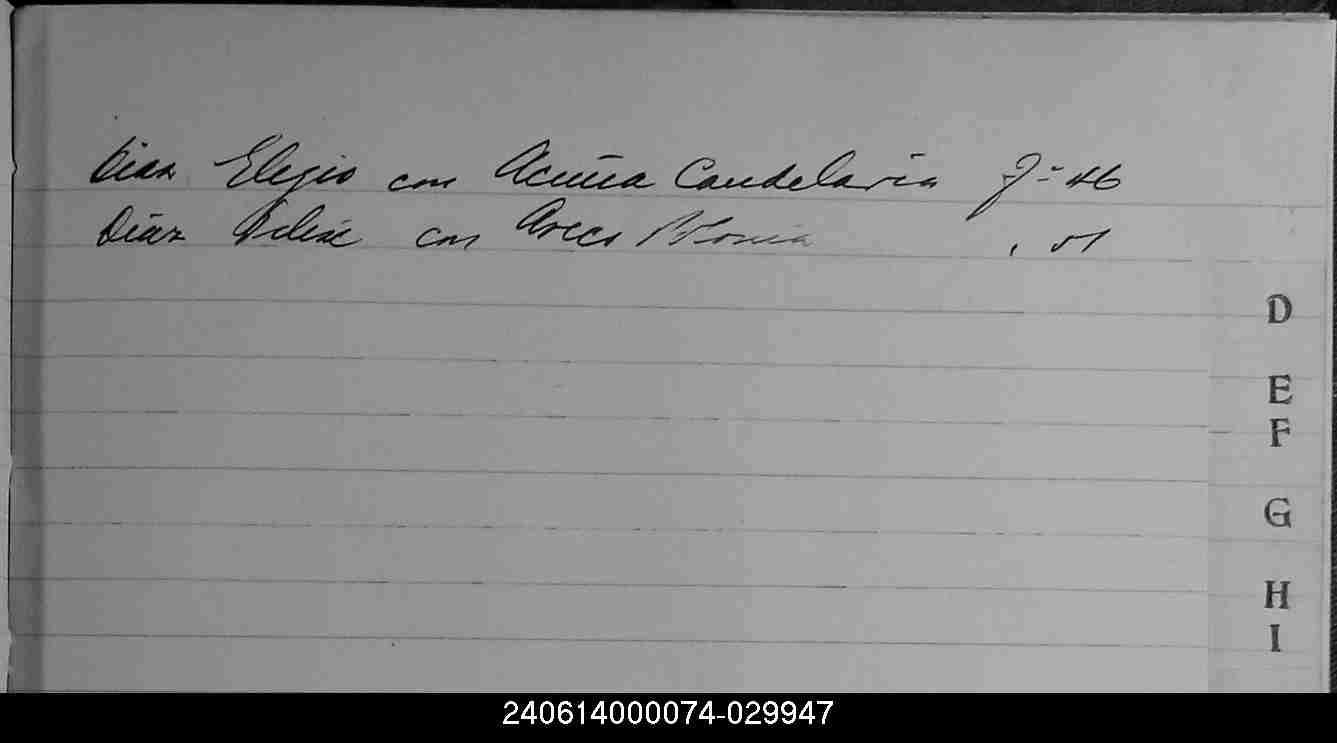 Diaz Elegio con Acuña Candelaria Fº 46
Díaz Felix con Arece , 51
D
E
F
G
H
I
240614000074-029947